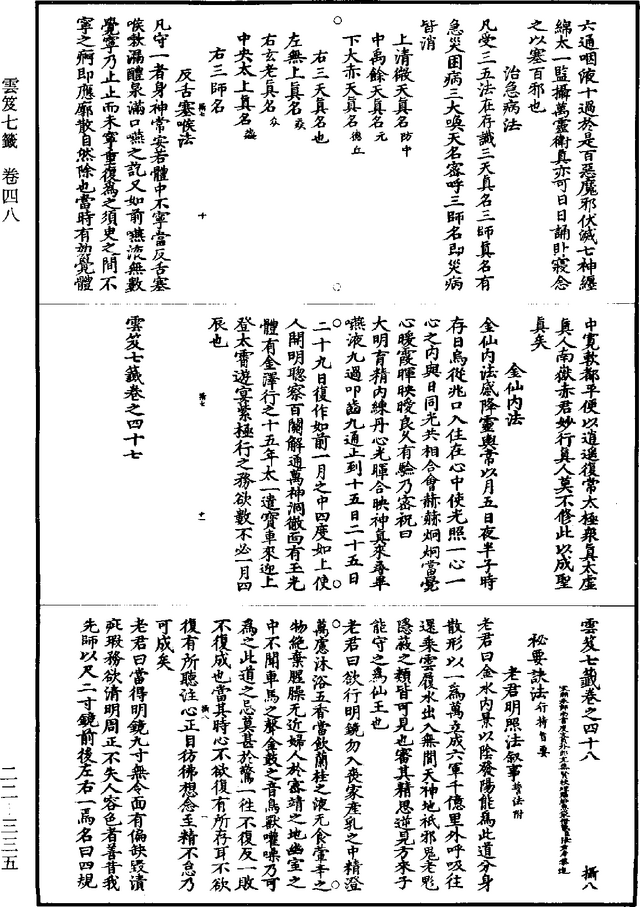 六通咽液十過於是百惡魔邪伏滅七神纏
綿太一監攝萬靈衛真亦可日日誦卧寢念
之以塞百邪也
治急病法
凡受三五法在存識三天真名三師真名有
急災困病三大喚天名密呼三師名即災病
皆消
上清微天真名防中
中禹餘天真名元
下大赤天真名德丘
右三天真名也
左無上真名
右玄老真名
中央太上真名
右三師名
反舌塞喉法
凡守一者身神常安若體中不寧當反舌塞
喉漱漏醴泉滿口嚥之訖又如前嚥液無數
覺寧乃止止而未寧重復為之須臾之間不
寧之痾即應廓散自然除也當時有効覺體
中寬軟都平便以逍遙復常太極衆真太虛
真人南嶽赤君妙行真人莫不修此以成聖
真矣
金仙内法
金仙内法感降靈輿常以月五日夜半子時
存日烏從兆口入住在心中使光照一心一
心之内與日同光共相合會赫赫烱烱當覺
心暖霞暉映曖良久有驗乃密祝曰
大明育精内練丹心光暉合映神真來尋畢
嚥液九過叩齒九通止到十五日二十五日
二十九日復作如前一月之中四度如上使
人開明聰察百關解通萬神洞徹面有玉光
體有金澤行之十五年太一遣寶車來迎上
登太霄遊宴紫極行之務欲數不必一月四
辰也
雲笈七籤卷之四十七
雲笈七籤卷之四十八 攝八
秘要訣法行持旨要
老君明照法叙事并法附
老君曰金水内景以陰發陽能為此道分身
散形以一為萬立成六軍千億里外呼吸往
還乘雲履水出入無間天神地祇邪鬼老魅
隱蔽之類皆可見也審其精思逆見方來子
能守之為仙王也
老君曰欲行明鏡勿入喪家產乳之中精澄
萬慮沐浴五香當飲蘭桂之液无食葷辛之
物絶棄腥臊无近婦人於密靖之地幽室之
中不聞車馬之聲金鼓之音鳥獸嚾噪乃可
為之此道之忌莫甚於驚一往不復反一敗
不復成也當其時心不欲復有所存耳不欲
復有所聽注心正目彷彿想念至精不怠乃
可成矣
老君曰當得明鏡九寸無令面有偏缺毀漬
疵瑕務欲清明周正不失人容色者善昔我
先師以尺二寸鏡前後左右一焉名曰四規
雲笈七籤 卷四八
二二—三三五